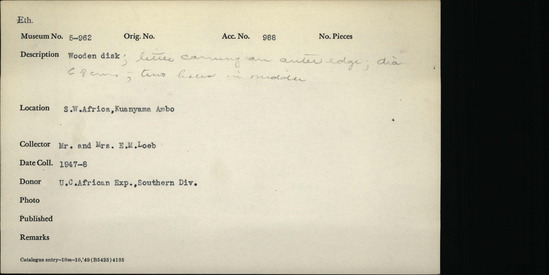 Eth.
Museum No. 5-962 Orig. No. Acc. No. 988 No. Pieces
Description Wooden disk; little carving on outer edge; dia
6.9 cms; two holes in middle
Location S.W.Africa,Kuanyama Ambo
Collector Mr. and Mrs. E.M.Loeb
Date Coll. 1947-8
Donor U.C.African Exp.,Southern Div.
Photo
Published
Remarks
Catalogue entry-10m-10,'49 (B5425) 4185